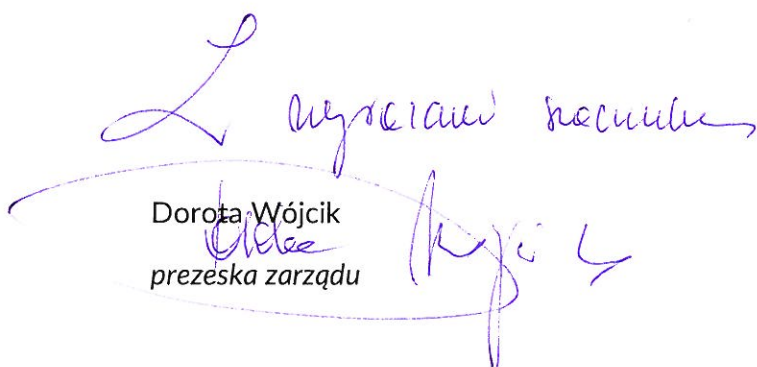 Z wyrazami szacunku
Dorota Wójcik
prezeska zarządu